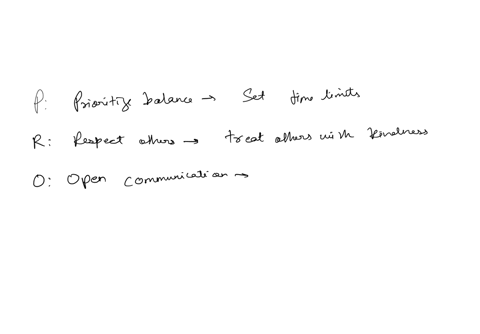 P: Prioritize balance → Set time limits
R: Respect others → treat others with kindness
O: Open communication →